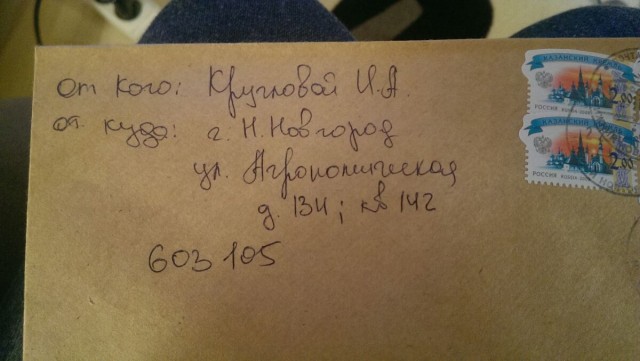 от кого: Кругловой И.А.
от куда: г. Н.Новгород
ул. Агрономическая
д. 134; кв 142
603105
КАЗАНСКИЙ
РОССИЯ
2,00
КАЗАНСКИЙ
РОССИЯ
2,00